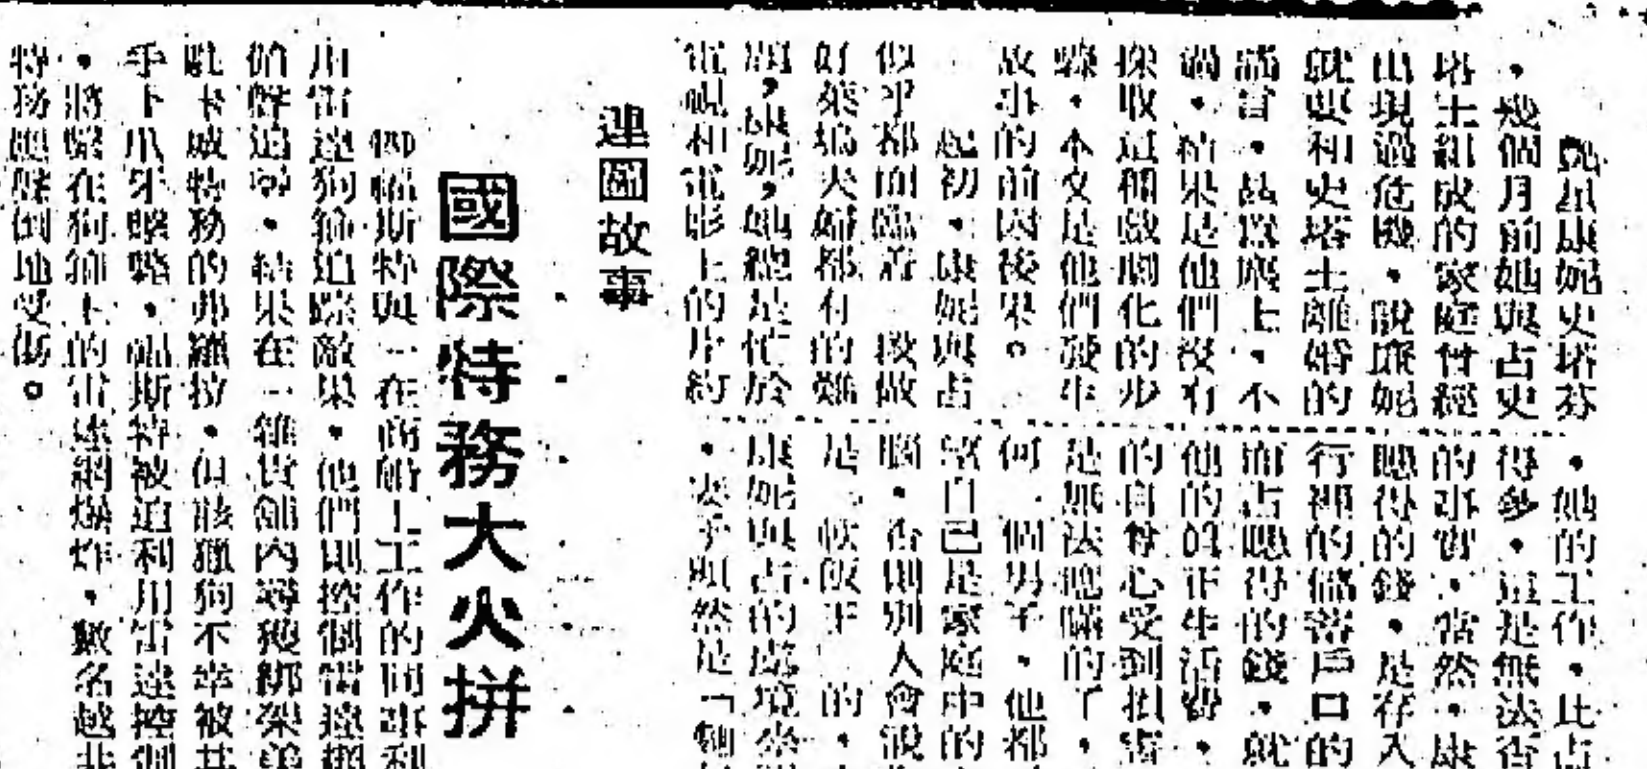 艷星康妮史塔芬
，幾個月前她與占史
塔士組成的家庭曾經
出現過危機，說康妮
就更和史塔士離婚的
不
過，結果是他們沒有
採取這種戲劇化的步
驟，本文是他們發生
故事的前因後果。
起初，康妮與占
似乎都面臨着一段做
好萊塢夫婦都有的難
題，康妮，她總是忙於
電視和電影上的片約
，她的工作，比占
得多，這是無法否
的事實，當然，康
賺得的錢，是存入
行裡的儲蓄戶口的
而占賺得的錢，就
他的真正生活費，
的自尊心受到損害
是無法隱瞞的了，
何一個男子，他都
望自己是家庭中的
腦，否則別人會說
是「軟飯王」的，
康妮與占的處境
，妻子顯然是「麵
連圖故事
國際特務大火拼
福斯特與一在商船上工作的同事利
用雷達狗追踪敵巢，他們則控個雷達
聲追尋，結果在一雜貨舖內尋獲綁架
駐卡威特務的弗羅拉，但該獵狗不幸被其
手下爪牙擊斃，福斯特被迫利用雷達控制
，將繫在狗上的雷達網爆炸，數名越
特務應聲倒地受傷。